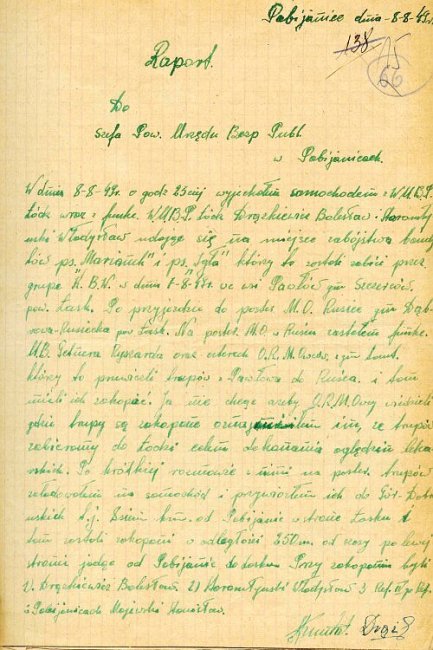 Pabijanice dnia - 8-8-49r.
138
66
Raport.
Do
Szefa Pow. Urzędu Bezp Publ.
w Pabijanicach.
W dniu 8-8-49r. o godz 23ciej wyjechałem samochodem z W.U.B.P.
Łódź wraz z funkc. W.U.B.P. Łódź Drążkiewicz Bolesław i
Władysław udając się na miejsce zabójstwa bandy
tów ps. "Marianek" i ps. "Żyła" którzy to zostali zabici przez
grupę "K.B.W." w dniu 8-49r we wsi Pawłów gm Szczerców
pow. Łask. Po przyjeździe do poster M.O. Rusiec gm Dąb-
rowa-Rusiecka pow Łask. Na poster. M.O. w Ruścu zastałem funkc.
U.B. Ryszarda oraz czterech O.R.M. z gm
którzy to przewieźli trupów z Pawłowa do Ruśca. i tam
mieli ich zakopać. Ja nie chcąc ażeby O.R.M.Owcy wiedzieli
gdzie trupy są zakopane oznajmiłem im, że trupów
zabieramy do Łodzi celem dokonania oględzin leka-
rskich. Po krótkiej rozmowie z nimi na poster. trupów
załadowałem na samochód i przywiozłem ich do Gór. Dob-
rońskich t.j. 8siem km. od Pabijanic w stronę Łasku i
tam zostali zakopani o odległości 250m. od szosy po lewej
stronie jadąc od Pabijanic do Łasku Przy zakopaniu byli
1/. Drążkiewicz Bolesław. 2) Władysław 3 Ref.
w Pabijanicach Majewski Stanisław.